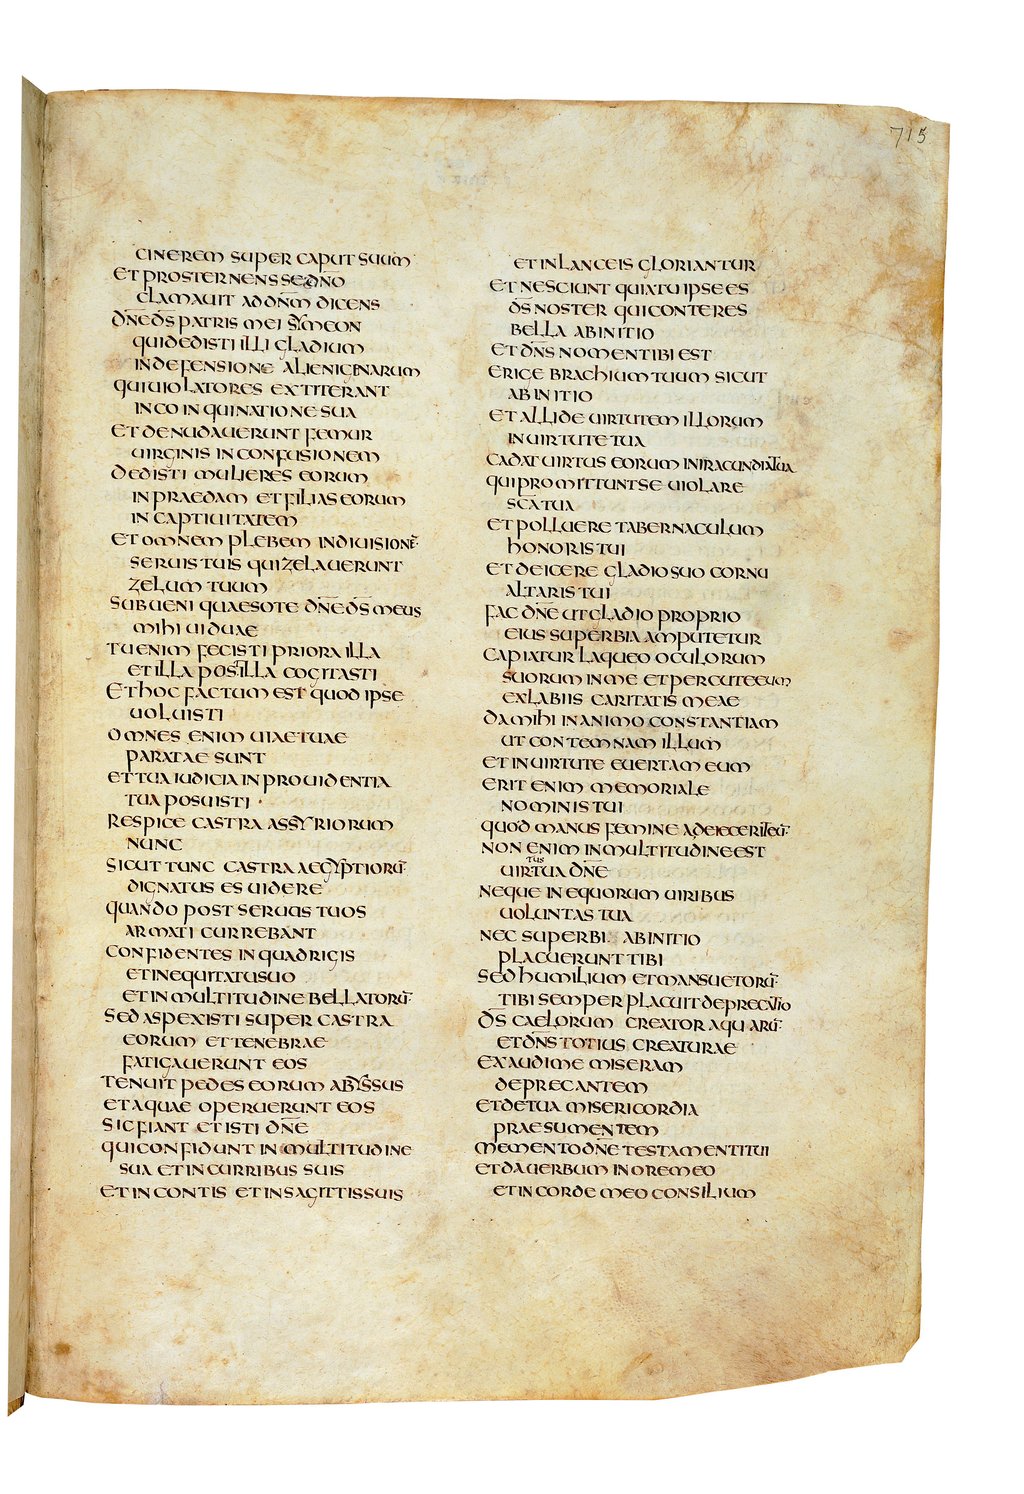 715
CINEREM SUPER CAPUT SUUM
ET PROSTERNENS SE DÑO
CLAMAUIT AD DÑM DICENS
DÑE DS̄ PATRIS MEI SYMEON
QUI DEDISTI ILLI GLADIUM
IN DEFENSIONE ALIENIGENARUM
QUI UIOLATORES EXTITERANT
IN COINQUINATIONE SUA
ET DENUDAUERUNT FEMUR
UIRGINIS IN CONFUSIONEM
DEDISTI MULIERES EORUM
IN PRAEDAM ET FILIAS EORUM
IN CAPTIUITATEM
ET OMNEM PLEBEM IN DIUISIONĒ
SERUIS TUIS QUI ZELAUERUNT
ZELUM TUUM
SUBUENI QUAESO TE DÑE DS̄ MEUS
MIHI UIDUAE
TU ENIM FECISTI PRIORA ILLA
ET ILLA POST ILLA COGITASTI
ET HOC FACTUM EST QUOD IPSE
UOLUISTI
OMNES ENIM UIAE TUAE
PARATAE SUNT
ET TUA IUDICIA IN PROUIDENTIA
TUA POSUISTI
RESPICE CASTRA ASSYRIORUM
NUNC
SICUT TUNC CASTRA AEGYPTIORŪ
DIGNATUS ES UIDERE
QUANDO POST SERUOS TUOS
ARMATI CURREBANT
CONFIDENTES IN QUADRIGIS
ET IN EQUITATU SUO
ET IN MULTITUDINE BELLATORŪ
SED ASPEXISTI SUPER CASTRA
EORUM ET TENEBRAE
FATIGAUERUNT EOS
TENUIT PEDES EORUM ABYSSUS
ET AQUAE OPERUERUNT EOS
SIC FIANT ET ISTI DÑE
QUI CONFIDUNT IN MULTITUDINE
SUA ET IN CURRIBUS SUIS
ET IN CONTIS ET IN SAGITTIS SUIS
ET IN LANCEIS GLORIANTUR
ET NESCIUNT QUIA TU IPSE ES
DS̄ NOSTER QUI CONTERES
BELLA AB INITIO
ET DÑS NOMEN TIBI EST
ERIGE BRACHIUM TUUM SICUT
AB INITIO
ET ALLIDE UIRTUTEM ILLORUM
IN UIRTUTE TUA
CADAT UIRTUS EORUM IN IRACUNDIA TUA
QUI PROMITTUNT SE UIOLARE
SCĀ TUA
ET POLLUERE TABERNACULUM
HONORIS TUI
ET DEICERE GLADIO SUO CORNU
ALTARIS TUI
FAC DÑE UT GLADIO PROPRIO
EIUS SUPERBIA AMPUTETUR
CAPIATUR LAQUEO OCULORUM
SUORUM IN ME ET PERCUTE EUM
EX LABIIS CARITATIS MEAE
DA MIHI IN ANIMO CONSTANTIAM
UT CONTEMNAM ILLUM
ET IN UIRTUTE EUERTAM EUM
ERIT ENIM MEMORIALE
NOMINIS TUI
QUOD MANUS FEMINE DEIECERIT EŪ
NON ENIM IN MULTITUDINE EST
UIRTUS TUA DÑE
NEQUE IN EQUORUM UIRIBUS
UOLUNTAS TUA
NEC SUPERBI AB INITIO
PLACUERUNT TIBI
SED HUMILIUM ET MANSUETORŪ
TIBI SEMPER PLACUIT DEPRECATIO
DS̄ CAELORUM CREATOR AQUARŪ
ET DÑS TOTIUS CREATURAE
EXAUDI ME MISERAM
DEPRECANTEM
ET DE TUA MISERICORDIA
PRAESUMENTEM
MEMENTO DÑE TESTAMENTI TUI
ET DA UERBUM IN ORE MEO
ET IN CORDE MEO CONSILIUM